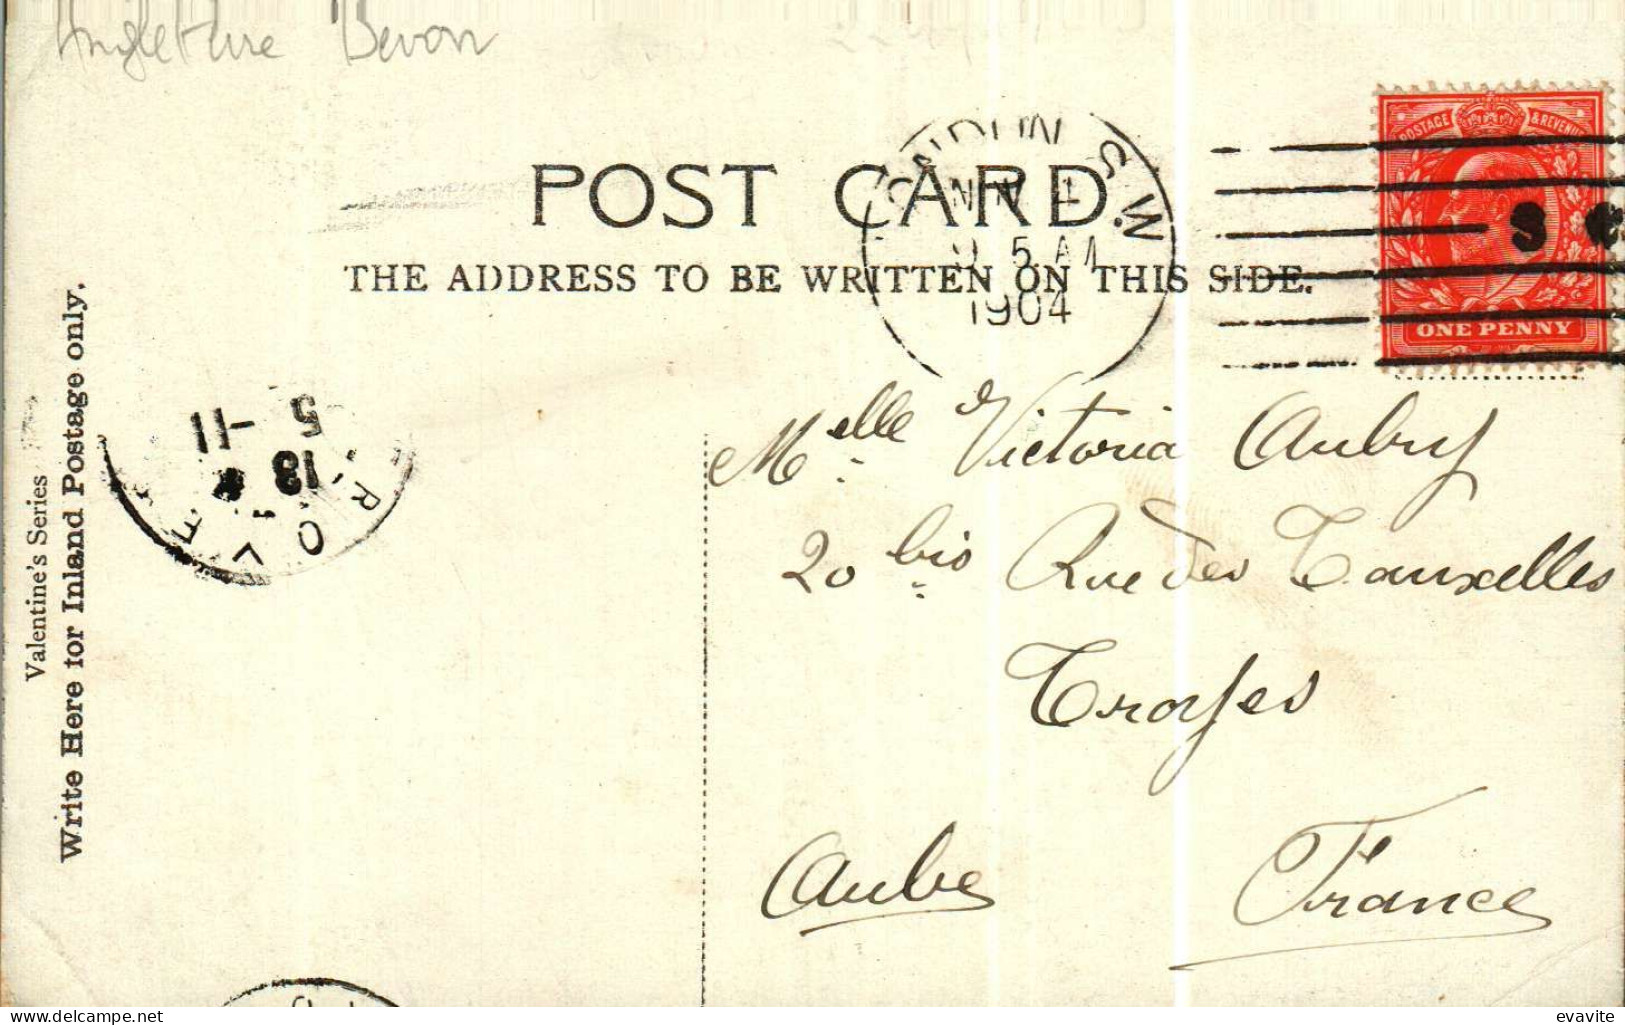 Angleterre Devon
POSTAGE & REVENUE
LONDON S.W.
POST CARD.
5 AM
THE ADDRESS TO BE WRITTEN ON THIS SIDE.
1904
ONE PENNY
Valentine's Series
Write Here for Inland Postage only.
13
5 -11
Melle Victoria Aubry
20 bis Rue des Tauxelles
Troyes
Aube France
evavite